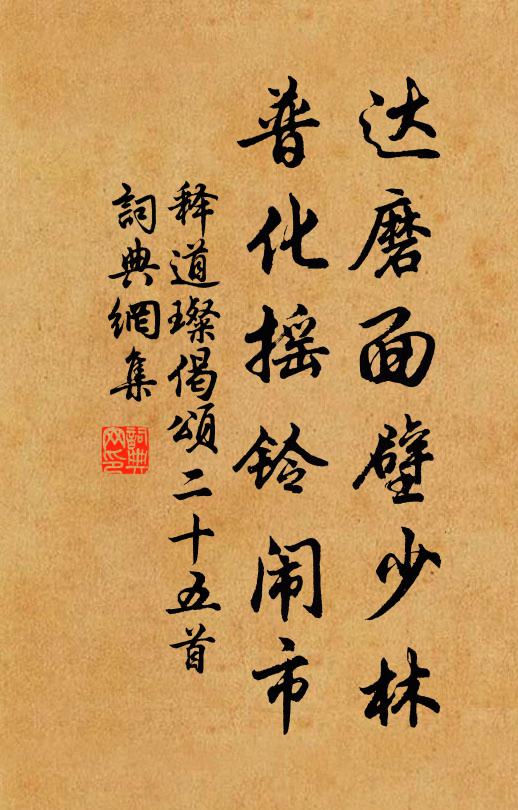 达磨面壁少林
普化摇铃闹市
释道璨偈頌二十五首
詞典網集
詞典
网印